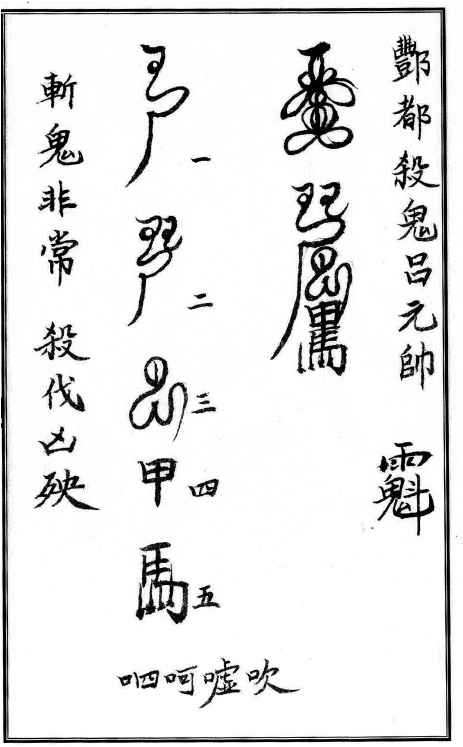 酆都殺鬼呂元帥
一
二
三
甲 四
馬 五
斬鬼非常 殺伐凶殃
吹噓呵呬